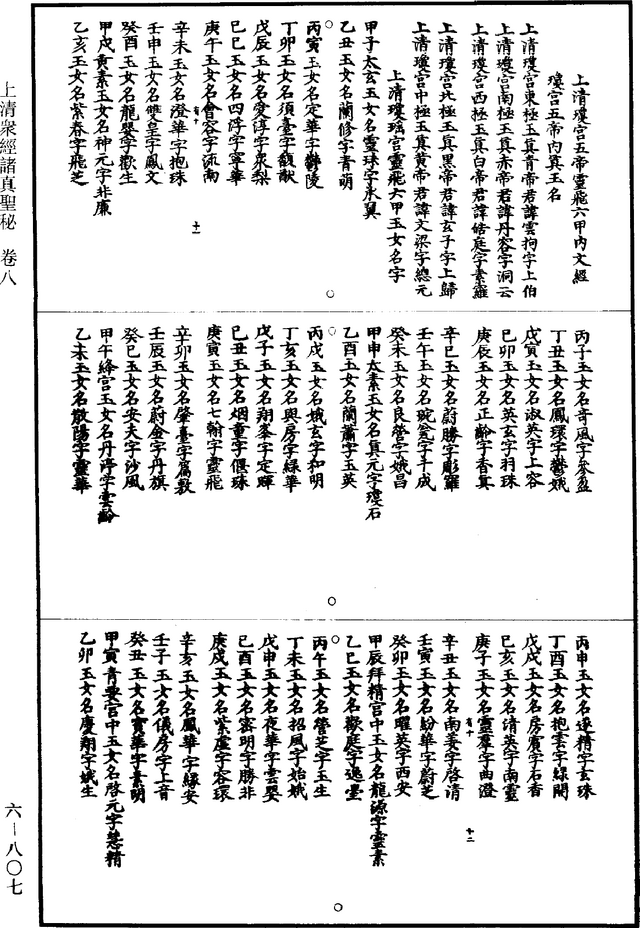 上清瓊宮五帝靈飛六甲內文經
瓊宮五帝內真玉名
上清瓊宮東極玉真青帝君諱雲拘字上伯
上清瓊宮南極玉真赤帝君諱丹容字洞云
上清瓊宮西極玉真白帝君諱皓庭字素羅
上清瓊宮北極玉真黑帝君諱玄子字上歸
上清瓊宮中極玉真黃帝君諱文梁字總元
上清瓊瑤宮靈飛六甲玉女名字
甲子太玄玉女名靈珠字承翼
乙丑玉女名蘭修字青萌
丙寅玉女名定華字鬱陵
丁卯玉女名須臺字馥猷
戊辰玉女名愛淳字泉梨
己巳玉女名四浮字寧華
庚午玉女名會容字流南
十一
辛未玉女名澄華字抱珠
壬申玉女名雙皇字鳳文
癸酉玉女名龍嬰字歡生
甲戌黃素玉女名神元字非廉
乙亥玉女名紫春字飛芝
丙子玉女名奇風字參盈
丁丑玉女名鳳環字鬱娥
戊寅玉女名淑英字上容
己卯玉女名英玄字羽珠
庚辰玉女名正齡字香真
辛巳玉女名蔚勝字彫羅
壬午玉女名琬瓫字千成
癸未玉女名良營字娥昌
甲申太素玉女名真元字瓊石
乙酉玉女名蘭蕭字玉英
丙戌玉女名娥玄字和明
丁亥玉女名與房字綠華
戊子玉女名翔峯字定暉
己丑玉女名烟童字偃珠
庚寅玉女名七翰字靈飛
辛卯玉女名肇臺字扁敷
壬辰玉女名蔚金字丹旗
癸巳玉女名安夫字沙風
甲午絳宮玉女名丹淳字雲齡
乙未玉女名散陽字靈華
丙申玉女名逐精字玄珠
丁酉玉女名抱雲字綠開
戊戌玉女名房賓字石香
己亥玉女名清英字南靈
庚子玉女名靈羣字曲澄
十二
辛丑玉女名南姜字啓清
壬寅玉女名紛華字蔚芝
癸卯玉女名曜英字西安
甲辰拜精宮中玉女名龍源字靈素
乙巳玉女名歡庭字逸臺
丙午玉女名營芝字玉生
丁未玉女名招風字始娥
戊申玉女名夜華字雲嬰
己酉玉女名密明字勝非
庚戌玉女名紫虛字容環
辛亥玉女名鳳華字綠安
壬子玉女名儀房字上音
癸丑玉女名寶華字素明
甲寅青要宮中玉女名啓元字慧精
乙卯玉女名慶翔字娥生
上清眾經諸真聖秘 卷八
六—八〇七